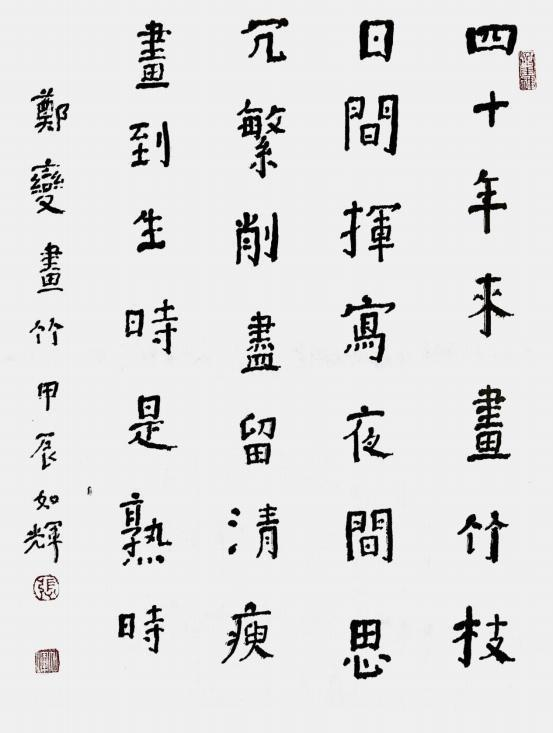 四十年來畫竹技
日間揮寫夜間思
冗繁削盡留清瘦
畫到生時是熟時
鄭燮畫竹甲辰如輝
張